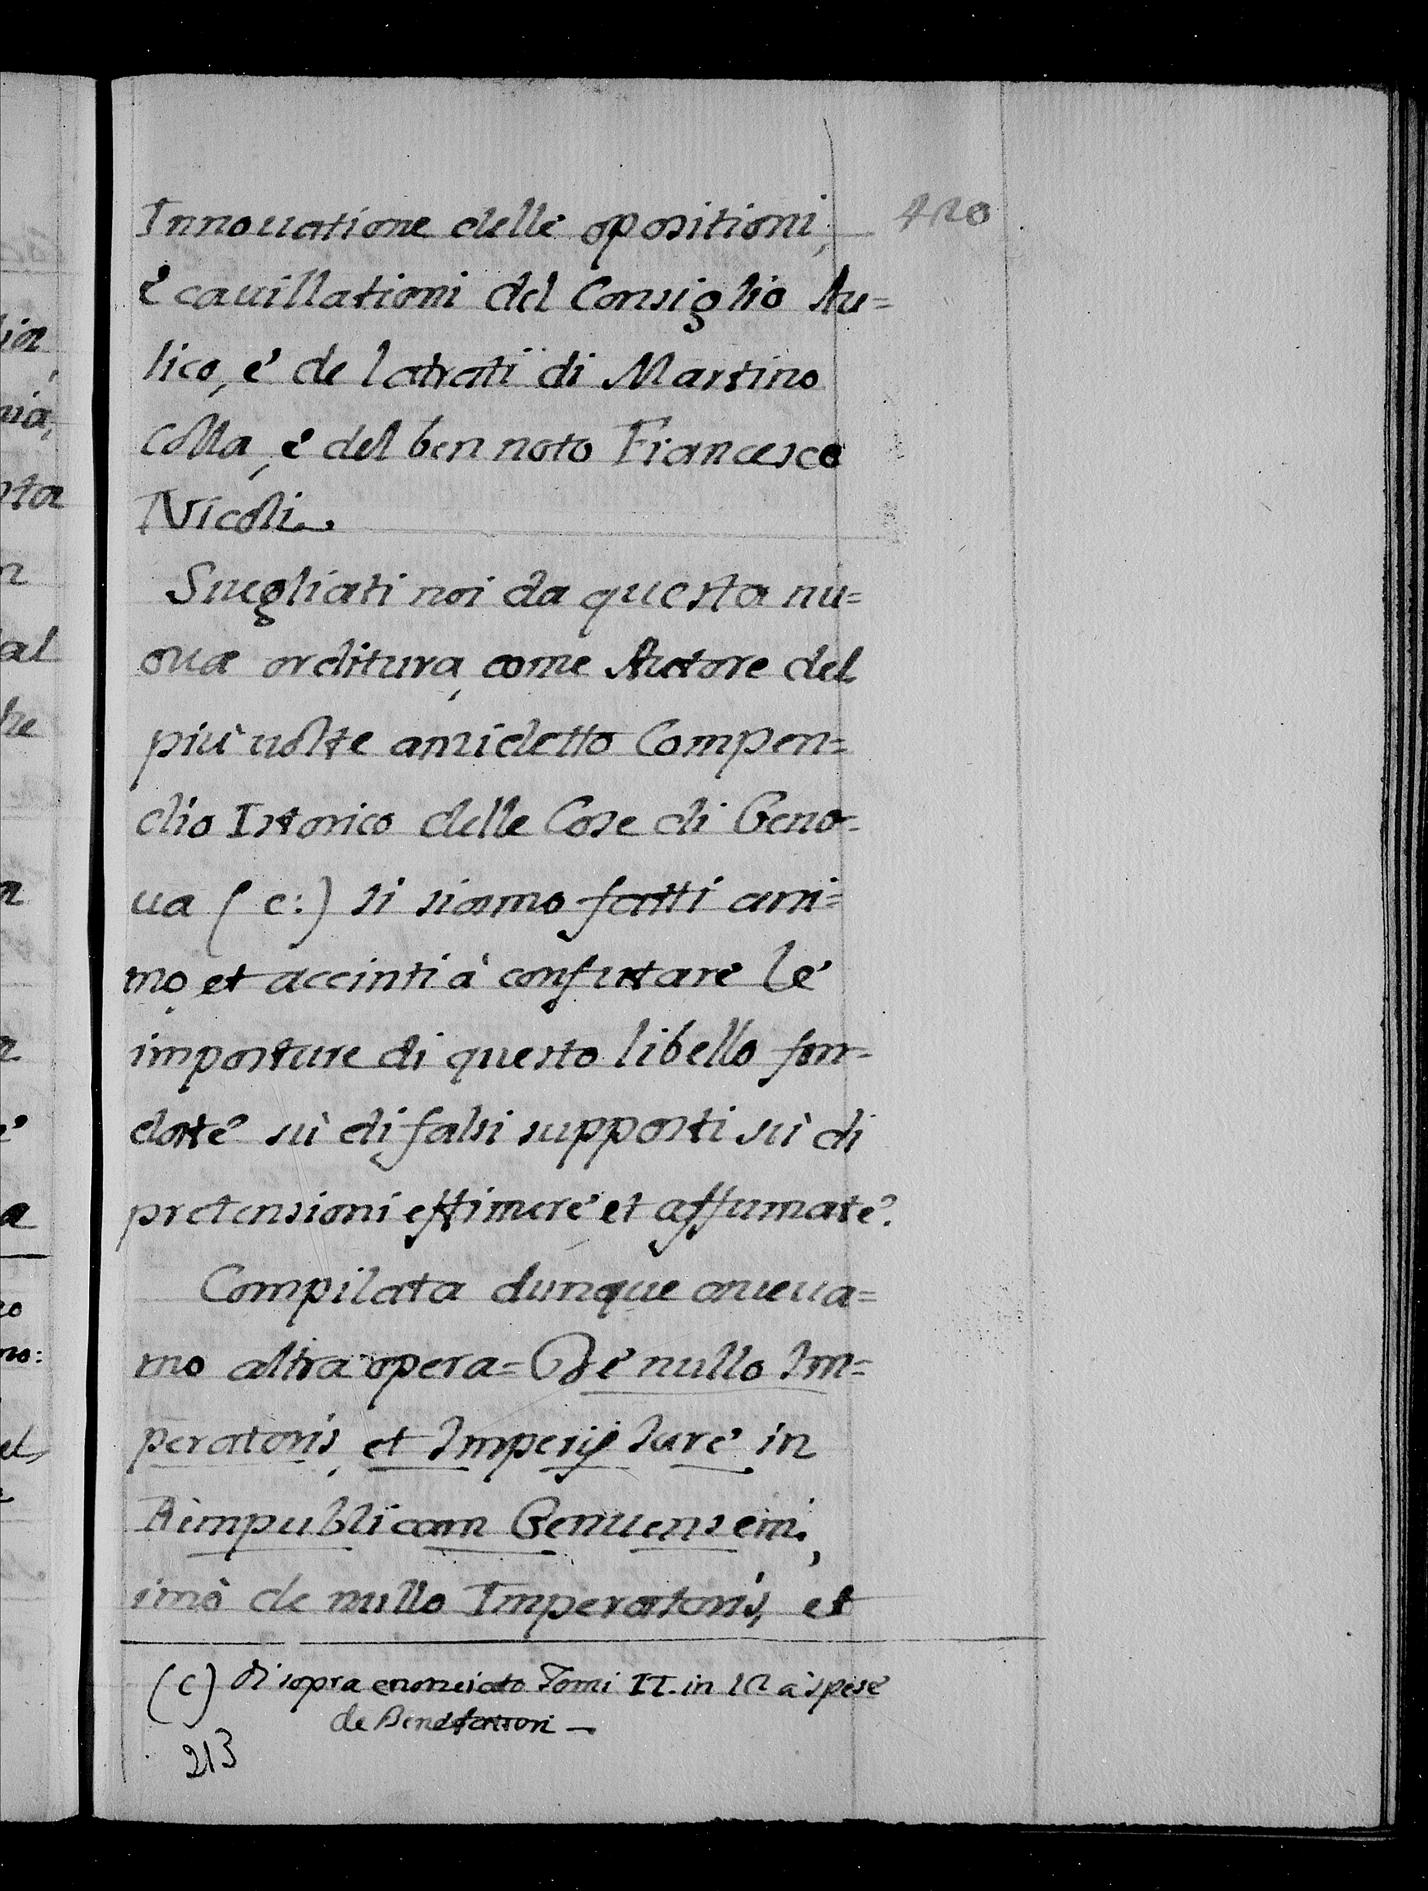 Innouatione delle opositioni, 420
è cauillationi del Consiglio Au=
lico, è de latrati di Martino
Colla, è del ben noto Francesco
Nicoli.
Suegliati noi da questa nu=
oua orditura, come Autore del
più uolte anzidetto Compen=
dio Istorico delle Cose di Geno=
ua (c:) si siamo fatti ani=
mo, et accinti à confutare le
imposture di questo libello fon=
date sù di falsi supposti sù di
pretensioni effimere, et affumate.
Compilata dunque aueua=
mo altra opera= De nullo Im=
peratoris, et Imperij Iure in
Rèmpublicam Genuensem,
imò de nullo Imperatoris, et
(c) di sopra enonciato Tomi II. in 12 à spese
de Benefattori —
213